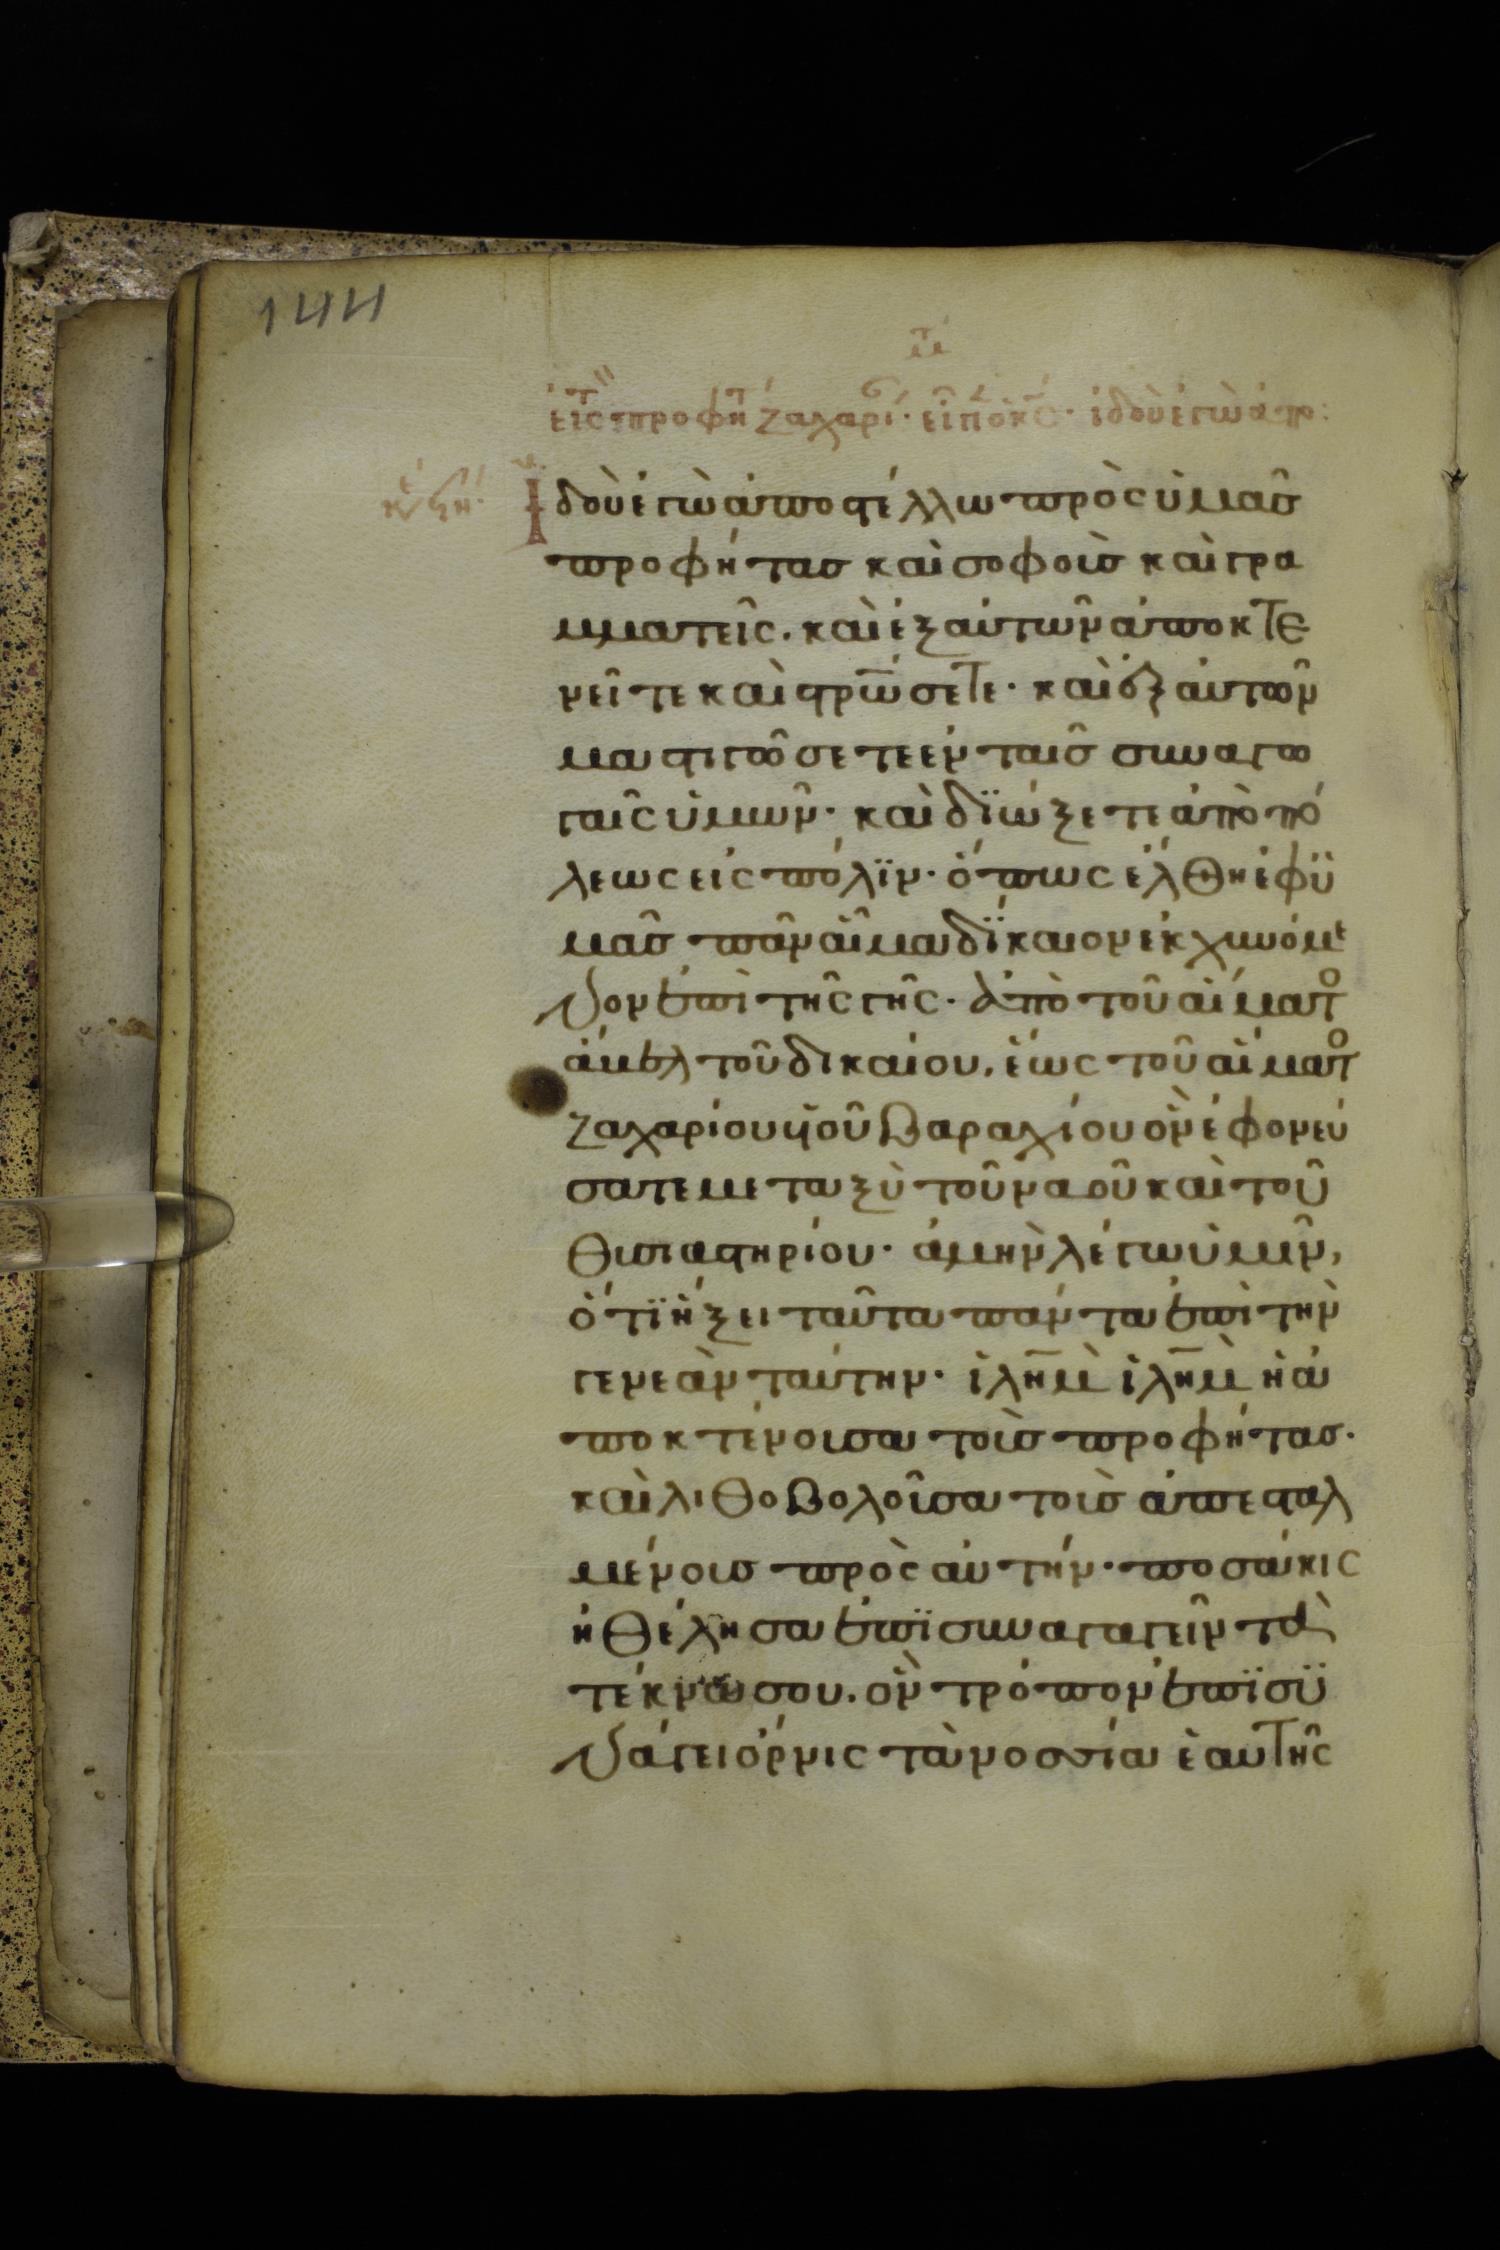 144
εἰς τ προφή ζαχαρί· εἶπ ὁ κς· ἰδοὺ ἐγὼ ἀπο:
Ἰδοὺ ἐγὼ ἀποστέλλω πρὸς ὑμᾶς
προφήτας καὶ σοφοὺς καὶ γρα
μματεῖς. καὶ ἐξ αὐτῶν ἀποκτε
νεῖτε καὶ στρώσετε· καὶ ἐξ αὐτῶν
μαστιγῶσετε ἐν ταῖς συναγω
γαῖς ὑμῶν· καὶ διώξετε ἀπὸ πό
λεως εἰς πόλϊν· ὅπως ἔλθη ἐφ ϋ
μᾶς πᾶν αἷμα δίκαιον ἐκχυνόμε
νον ἐπὶ τῆς γῆς· ἀπὸ τοῦ αἵματο
ἄμελ τοῦ δικαίου, ἕως τοῦ αἵματο
ζαχαρίου υἱοῦ βαραχίου ὃν ἐφονεύ
σατε μεταξὺ τοῦ ναοῦ καὶ τοῦ
θυσιαστηρίου· ἀμὴν λέγω ὑμῖν,
ὅτϊ ἥξει ταῦτα πάντα ἐπὶ τὴν
γενεὰν ταύτην· ἰλῆμ ἰλῆμ ἡ ἀ
ποκτένουσα τοὺς προφήτας·
καὶ λιθοβολοῦσα τοὺς ἀπεσταλ
μένους πρὸς αὐτήν· ποσάκις
ἠθέλησα ἐπϊσυναγαγεῖν τὰ
τέκνα σου. ὃν τρόπον ἐπϊσϋ
νάγει ὄρνις τὰ νοσσία ἑαυτῆς